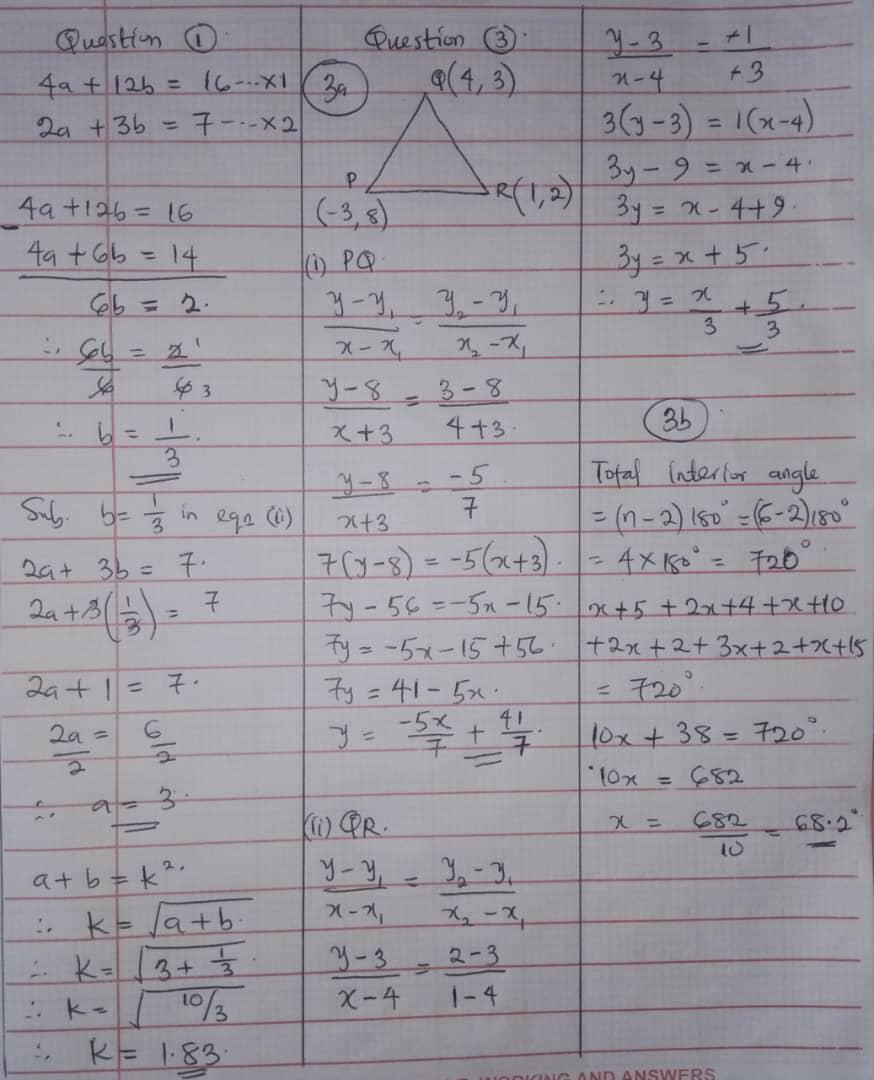 Question ①
4a + 12b = 16 --- ×1
2a + 3b = 7 --- ×2
4a + 12b = 16
- 4a + 6b = 14
6b = 2.
∴ 6b/6 = 2¹/6 3
∴ b = 1/3.
Sub. b = 1/3 in eqn (ii)
2a + 3b = 7.
2a + 3(1/3) = 7
2a + 1 = 7.
2a/2 = 6/2
∴ a = 3.
a + b = k².
∴ k = √a + b.
∴ k = √3 + 1/3.
∴ k = √10/3
∴ k = 1.83.
Question ③.
3a
Q(4, 3)
P
(-3, 8)
R(1, 2)
(i) PQ.
y - y₁/x - x₁ = y₂ - y₁/x₂ - x₁
y - 8/x + 3 = 3 - 8/4 + 3.
y - 8/x + 3 = -5/7
7(y - 8) = -5(x + 3).
7y - 56 = -5x - 15.
7y = -5x - 15 + 56.
7y = 41 - 5x.
y = -5x/7 + 41/7.
(ii) QR.
y - y₁/x - x₁ = y₂ - y₁/x₂ - x₁
y - 3/x - 4 = 2 - 3/1 - 4
y - 3/x - 4 = +1/+3
3(y - 3) = 1(x - 4)
3y - 9 = x - 4.
3y = x - 4 + 9.
3y = x + 5.
∴ y = x/3 + 5/3.
3b
Total interior angle
= (n - 2) 180° = (6 - 2)180°
= 4 × 180° = 720°
x + 5 + 2x + 4 + x + 10
+ 2x + 2 + 3x + 2 + x + 15
= 720°.
10x + 38 = 720°.
10x = 682
x = 682/10 = 68.2°
WORKING AND ANSWERS